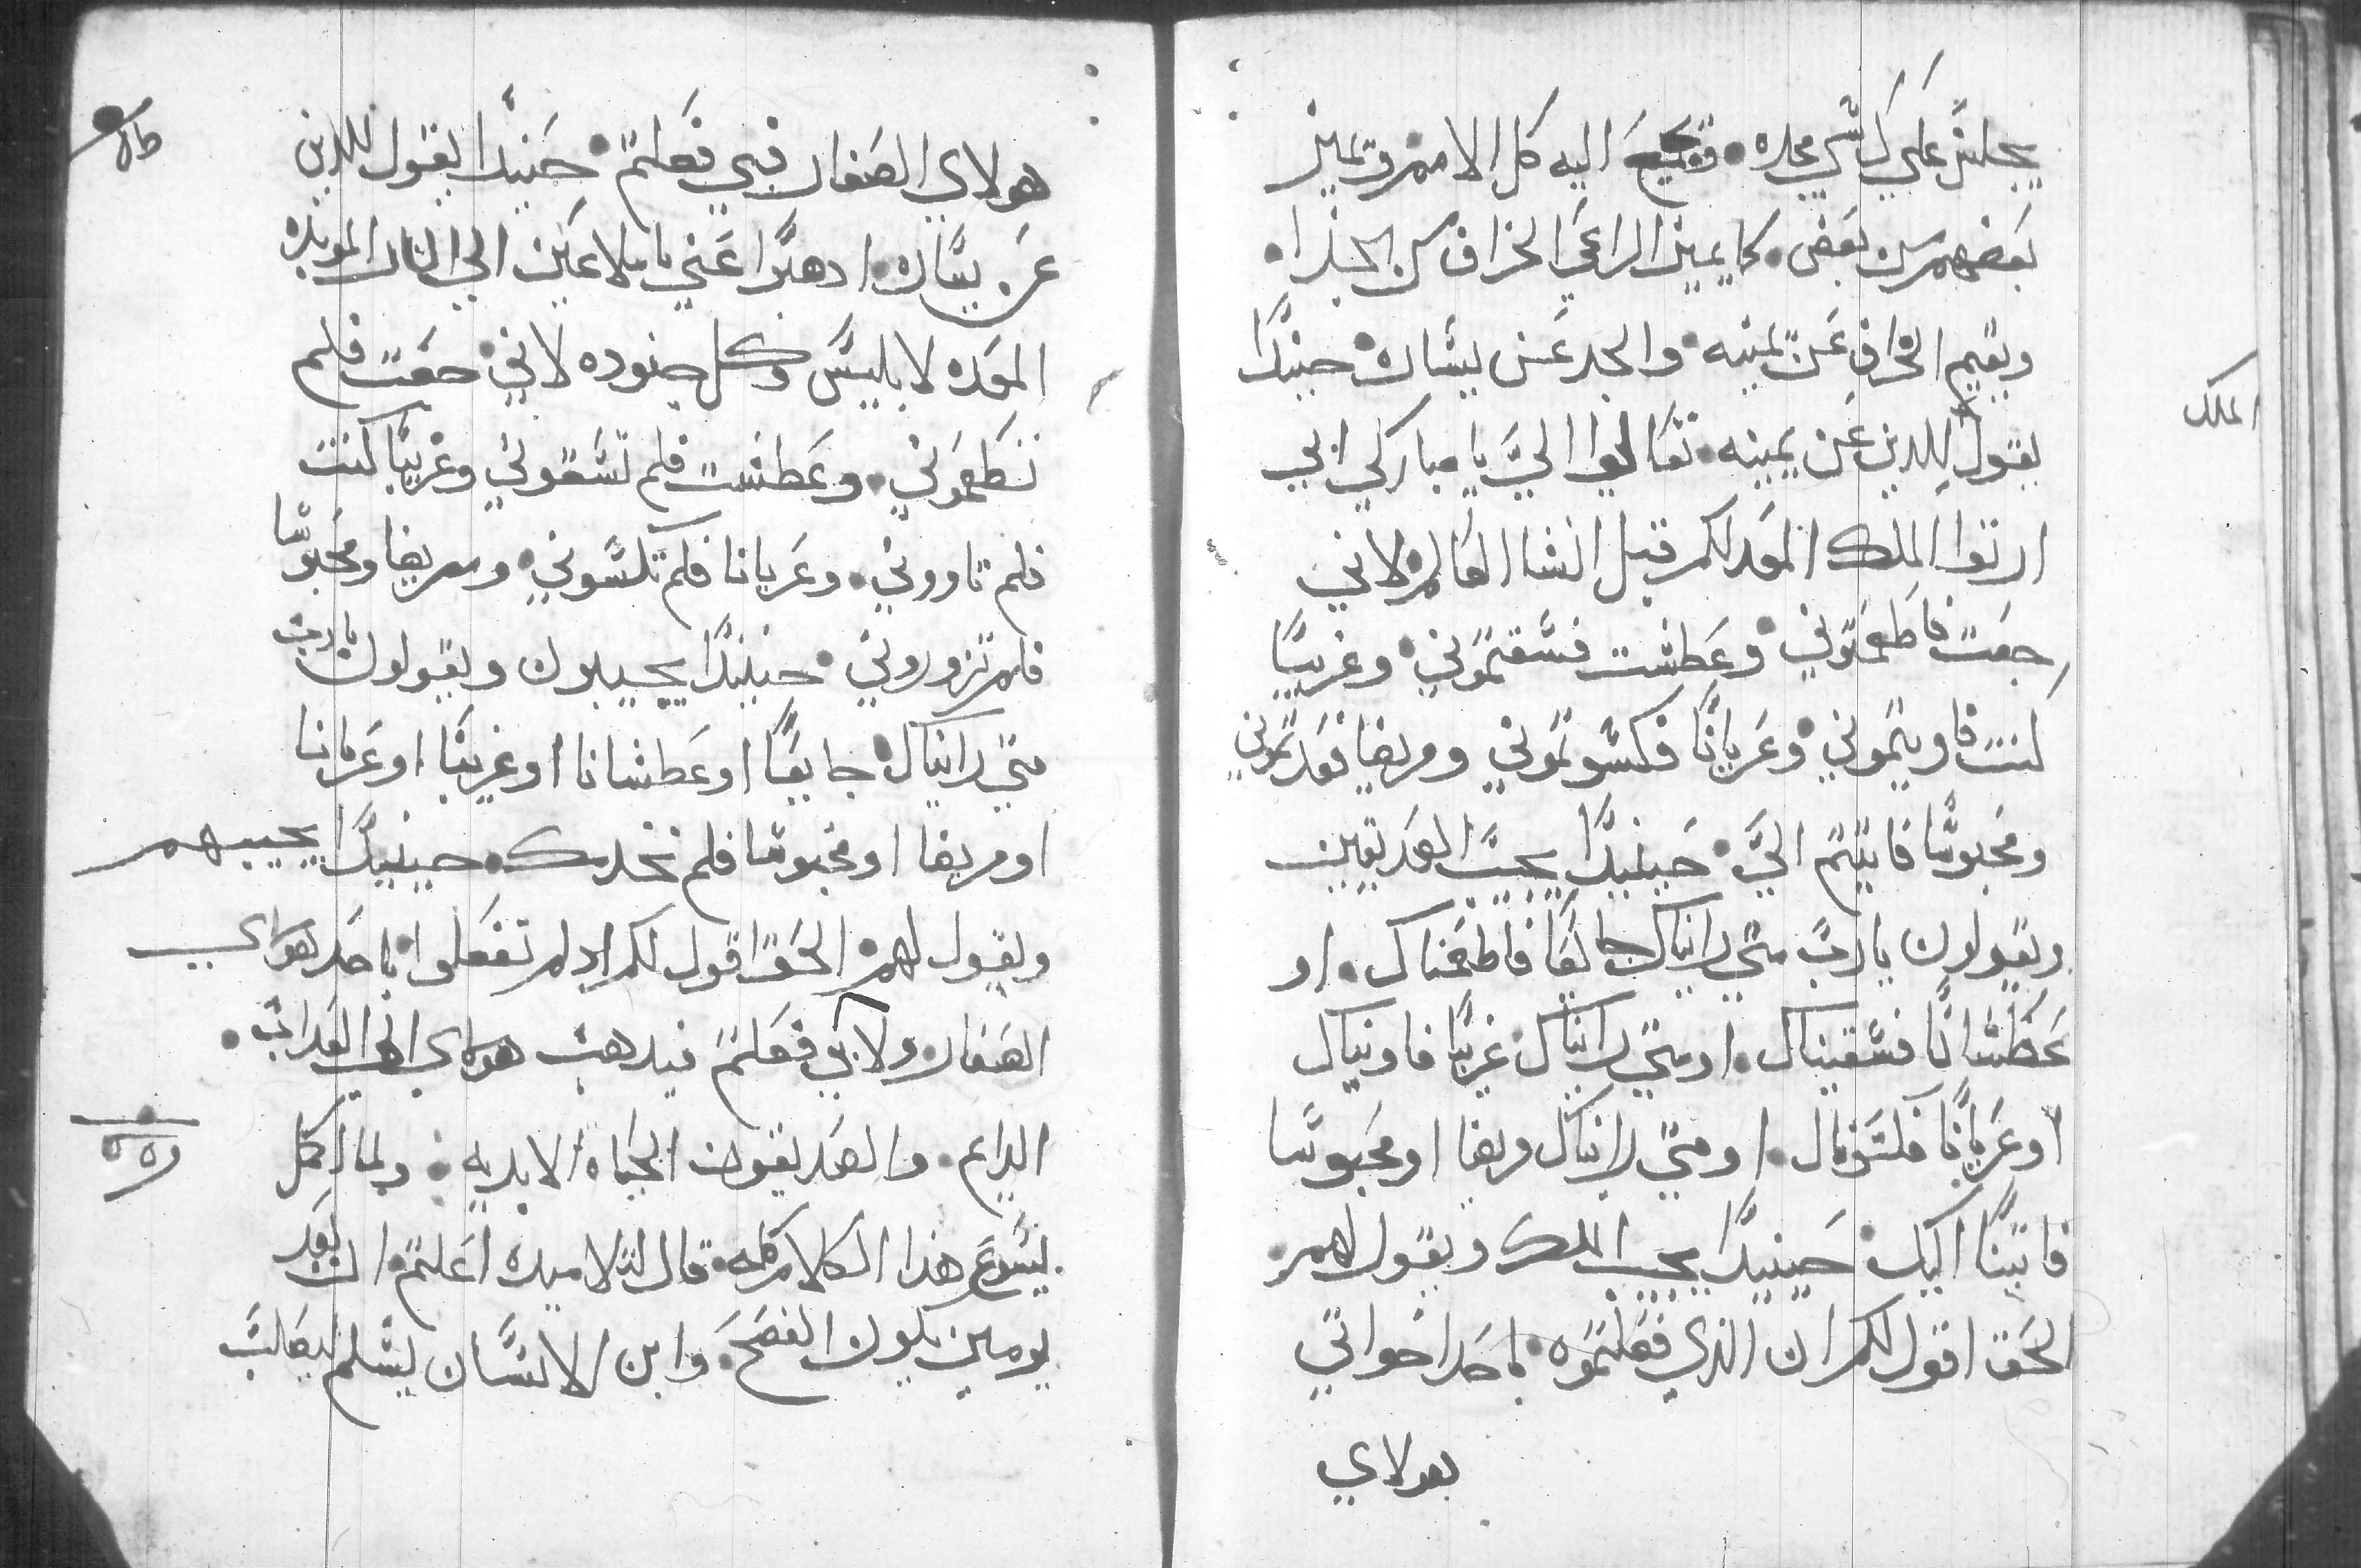 يجلس على كرسي مجده. وتجمع اليه كل الامم فيميز
بعضهم من بعض. كما يميز الراعي الخراف من الجدا.
ويقيم الخراف عن يمينه. والجدا عن يساره. حينيدًا
الملك
يقول للدين عن يمينه. تعالوا اليَّ يا مباركي ابي
ارتوا الملك المعد لكم قبل انشا العالم. لاني
جعت فاطعمتوني. وعطشت فسقيتموني. وغريبًا
كنت فاويتموني. وعريانًا فكسوتموني ومريضا فعدتموني
ومحبوسًا فاتيتم اليَّ. حينيدًا يجيب الصديقين
ويقولون يارب متي رايناك جايعًا فاطعمناك. او
عطشانًا فسقيناك. او متي رايناك غريبًا فاويناك
او عريانًا فكسوناك. او متي رايناك مريضا او محبوسًا
فاتينا اليك. حينيدًا يجيب الملك ويقول لهم.
الحق اقول لكم ان الذي فعلتموه. باحد اخواتي
هولاي
هولاي الصغار فبي فعلتم. حينيدًا يقول للدين
عن يساره. ادهبوا عني يا ملاعين الي النار الموبده
المعده لابليس وكل جنوده لاني. جعت فلم
تطعموني. وعطشت فلم تسقوني وغريبًا كنت
فلم تاووني. وعريانا فلم تكسوني. ومريضا ومحبوسا
فلم تزوروني. حينيدًا يجيبون ويقولون يارب
متي رايناك. جايعًا او عطشانا او غريبًا او عريانا
او مريضا او محبوسا فلم نخدمك. حينيدًا يجيبهم
ويقول لهم. الحق اقول لكم اد لم تفعلوا. باحد هولاي
الصغار. ولا بي فعلتم فيدهب هولاي الي العداب.
الدايم. والصديقون الحياه الابديه. ولما اكمل
يسوع هذا الكلام كله. قال لتلاميده اعلمتم. ان بعد
يومين يكون الفصح. وابن الانسان يسلم ليصلب